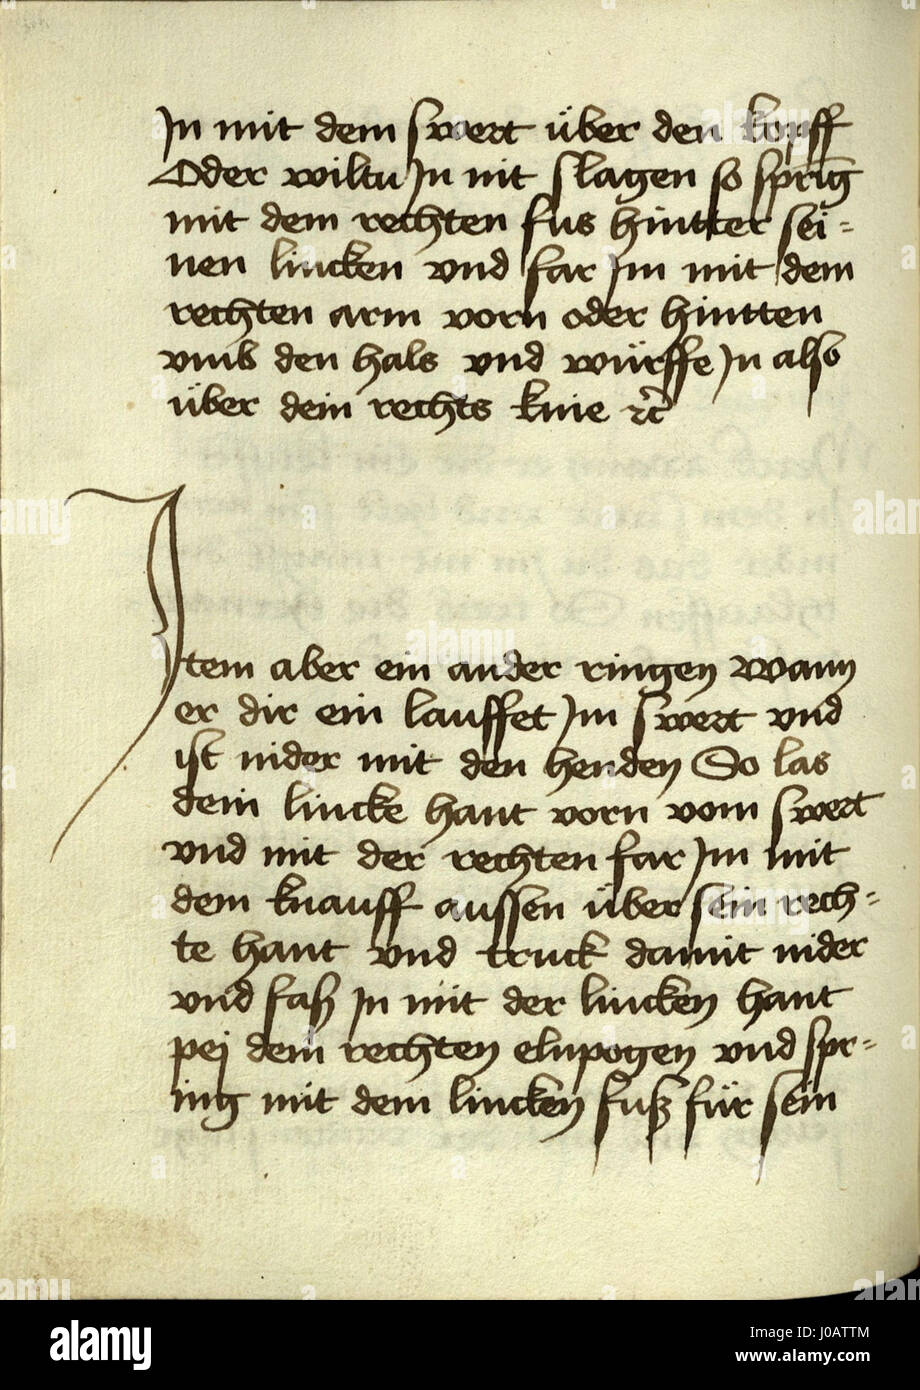 Jn mit dem swert über den kopff
Oder wiltu Jn nit slagen so spring
mit dem rechten fus hintter sei=
nen lincken vnd far Jm mit dem
rechten arm vorn oder hintten
vmb den hals vnd würffe Jn also
über dein rechts knie ꝛc̃
Jtem aber ein ander ringen wann
er dir ein lauffet Jm swert vnd
ist nider mit den henden So las
dein lincke hant vorn vom swert
vnd mit der rechten far Jm mit
dem knauff aussen über sein rech=
te hant vnd truck damit nider
vnd faß Jn mit der lincken hant
pej dem rechten elnpogen vnd spr=
ing mit dem lincken fuß für sein
alamy
Image ID: J0ATTM
www.alamy.com